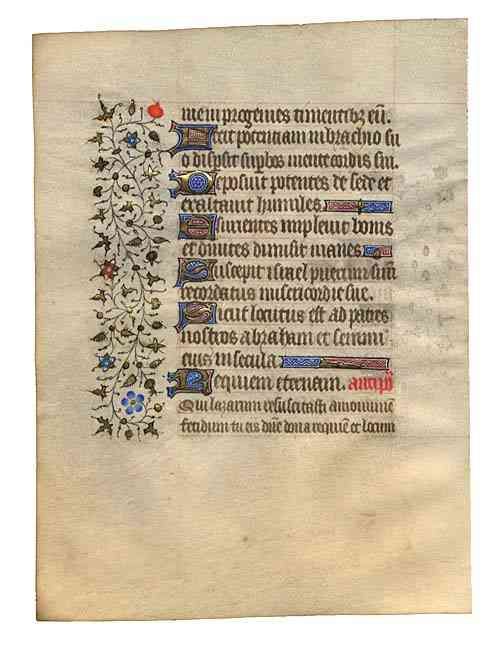 niem progenies timentibz eu.
Fecit potentiam in brachio su
o dispsit supbos mente cordis sui.
Deposuit potentes de sede et
exaltauit humiles.
Esurientes impleuit bonis
et diuites dimisit inanes
Suscepit israel puerum suu
recordatus misericordie sue.
Sicut locutus est ad patres
nostros abraham et semini
eius in secula
Requiem eternam. antiph
Qui lazarum resuscitasti a monume
fetidum tu eis dne dona requie et locum